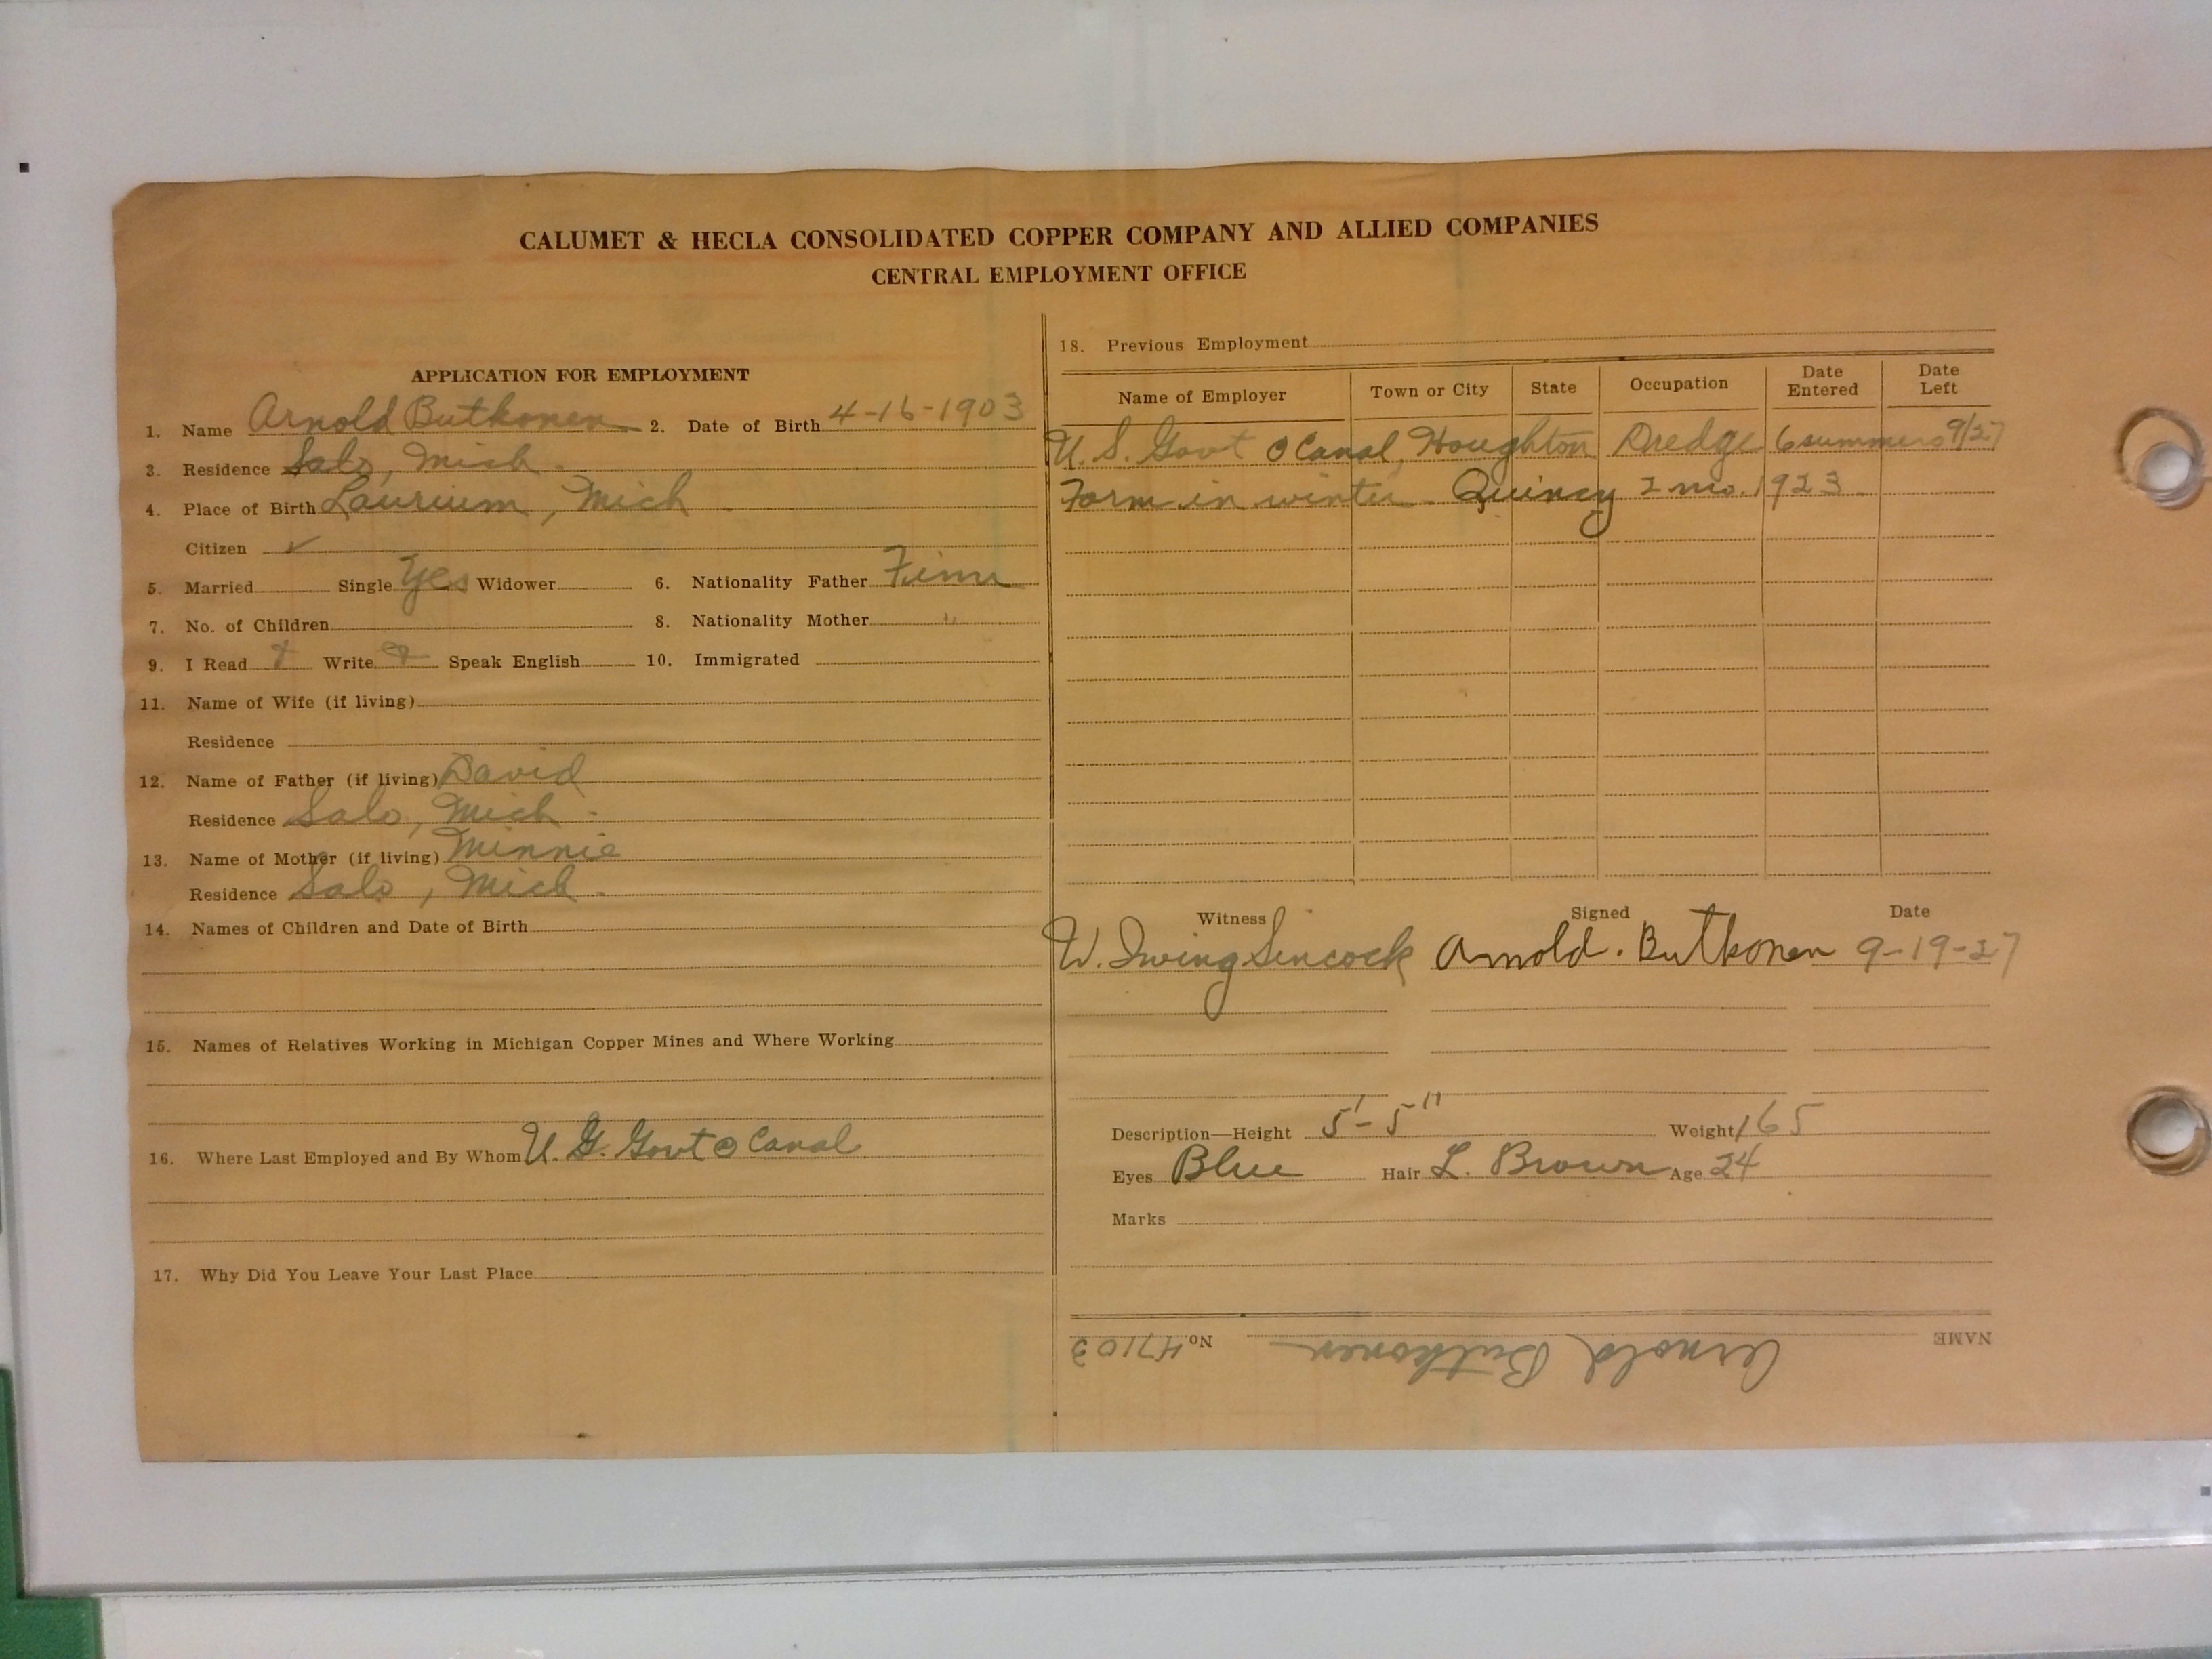 CALUMET & HECLA CONSOLIDATED COPPER COMPANY AND ALLIED COMPANIES
CENTRAL EMPLOYMENT OFFICE
APPLICATION FOR EMPLOYMENT
1. Name Arnold Butkonen 2. Date of Birth 4-16-1903
3. Residence Salo, Mich.
4. Place of Birth Laurium, Mich
Citizen ✓
5. Married Single Yes Widower 6. Nationality Father Finn
7. No. of Children 8. Nationality Mother "
9. I Read Write Speak English 10. Immigrated
11. Name of Wife (if living)
Residence
12. Name of Father (if living) David
Residence Salo, Mich.
13. Name of Mother (if living) Minnie
Residence Salo, Mich.
14. Names of Children and Date of Birth
15. Names of Relatives Working in Michigan Copper Mines and Where Working
16. Where Last Employed and By Whom U. S. Govt @ Canal
17. Why Did You Leave Your Last Place
18. Previous Employment
Name of Employer Town or City State Occupation Date Entered Date Left
U. S. Govt @ Canal, Houghton Dredge 6 summers 9/27
Farm in winter - Quincy 2 mo. 1923
Witness Signed Date
W. Irving Sincock Arnold. Butkonen 9-19-27
Description—Height 5'-5" Weight 165
Eyes Blue Hair L. Brown Age 24
Marks
NAME Arnold Butkonen No. 47103